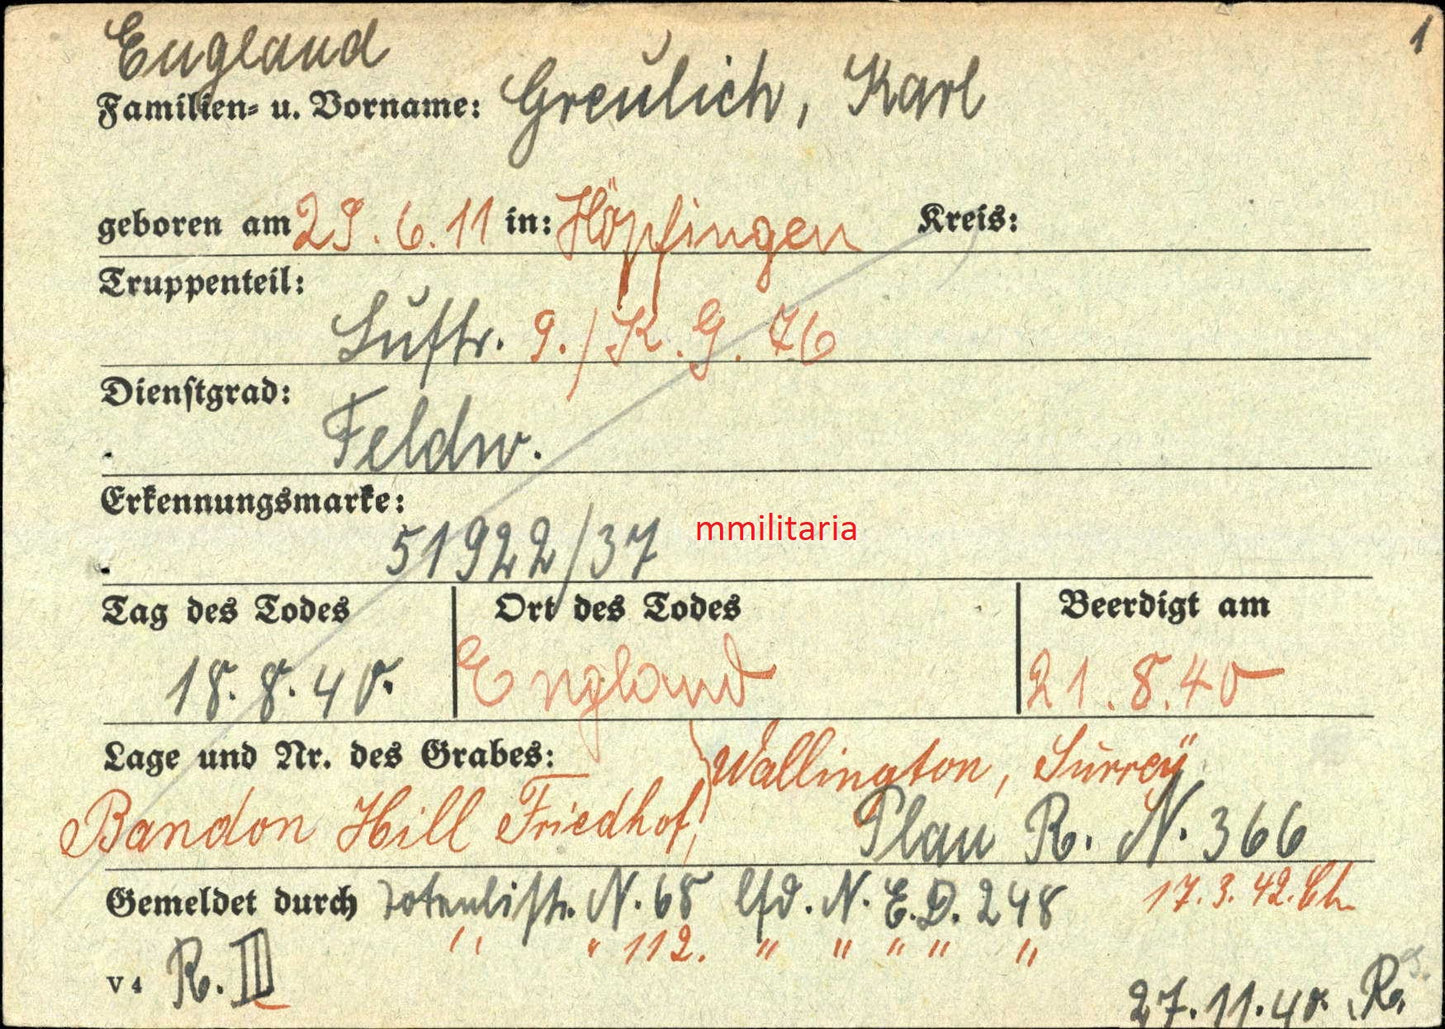 1
England
Familien- u. Vorname: Greulich, Karl
geboren am 29.6.11 in: Höpfingen Kreis:
Truppenteil:
Luftw. 9./K.G.76
Dienstgrad:
Feldw.
Erkennungsmarke:
51922/37
mmilitaria
Tag des Todes Ort des Todes Beerdigt am
18.8.40. England 21.8.40
Lage und Nr. des Grabes: Wallington, Surrey
Bandon Hill Friedhof, Plan R. N. 366
Gemeldet durch Totenliste N. 68 lfd. N. E.D. 248 17.3.42.
" " 112. " " " " "
V4 R. III
27.11.40. R.